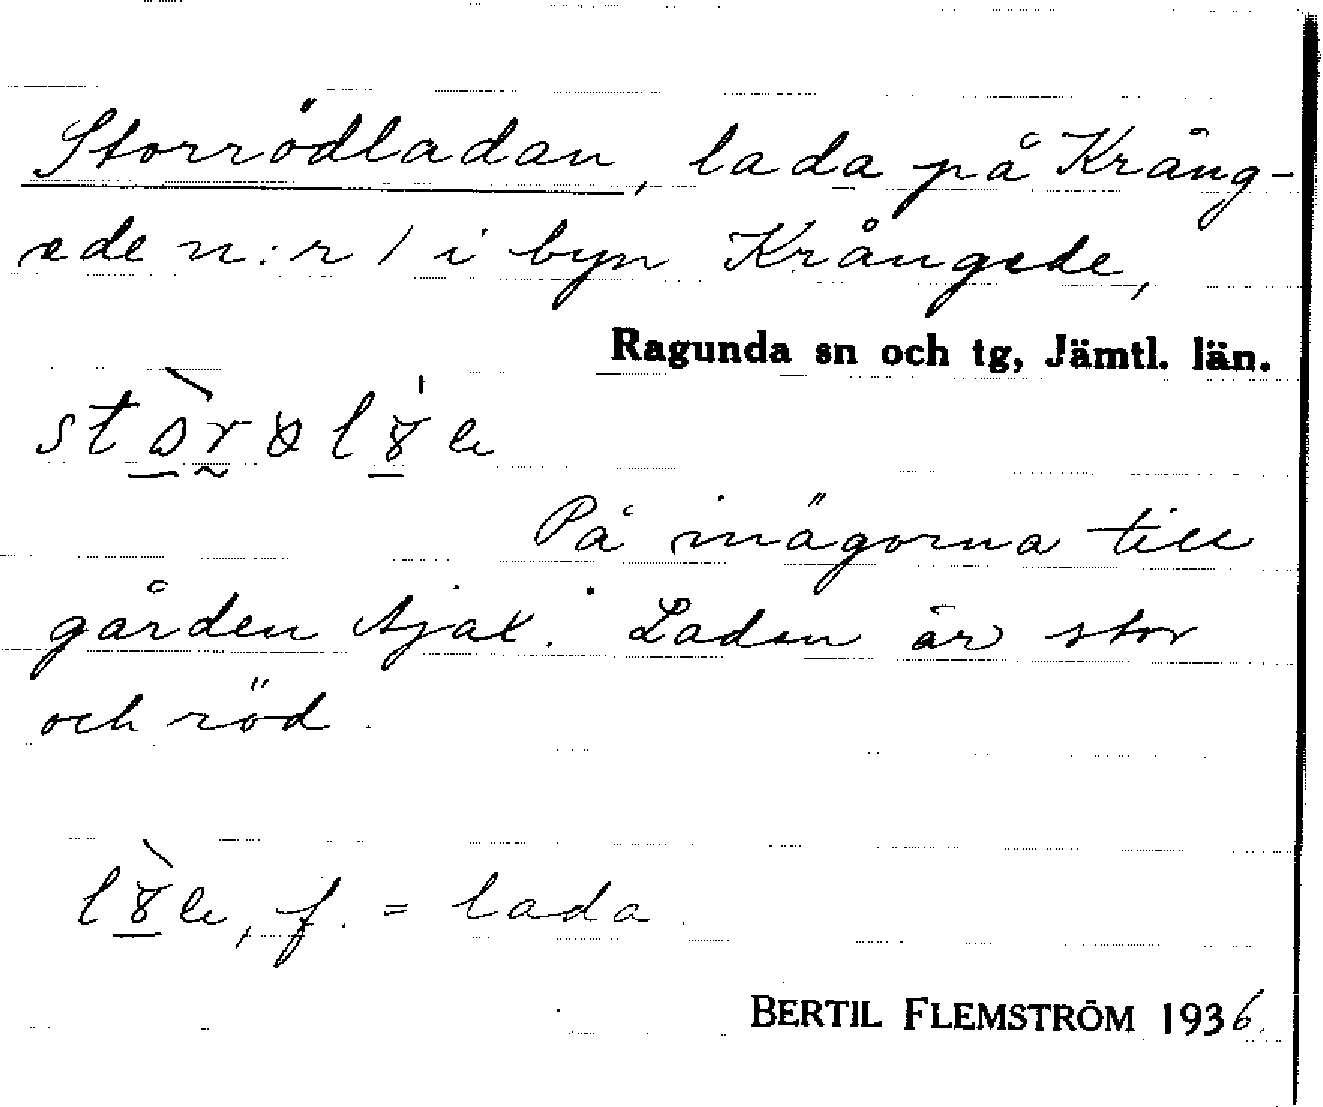 Storrödladan, lada på Kräng-
ede n:r 1 i byn Krångede,
Ragunda sn och tg, Jämtl. län.
På inägorna till
gården Ajax. Ladan är stor
och röd.
f. = lada.
BERTIL FLEMSTRÖM 1936